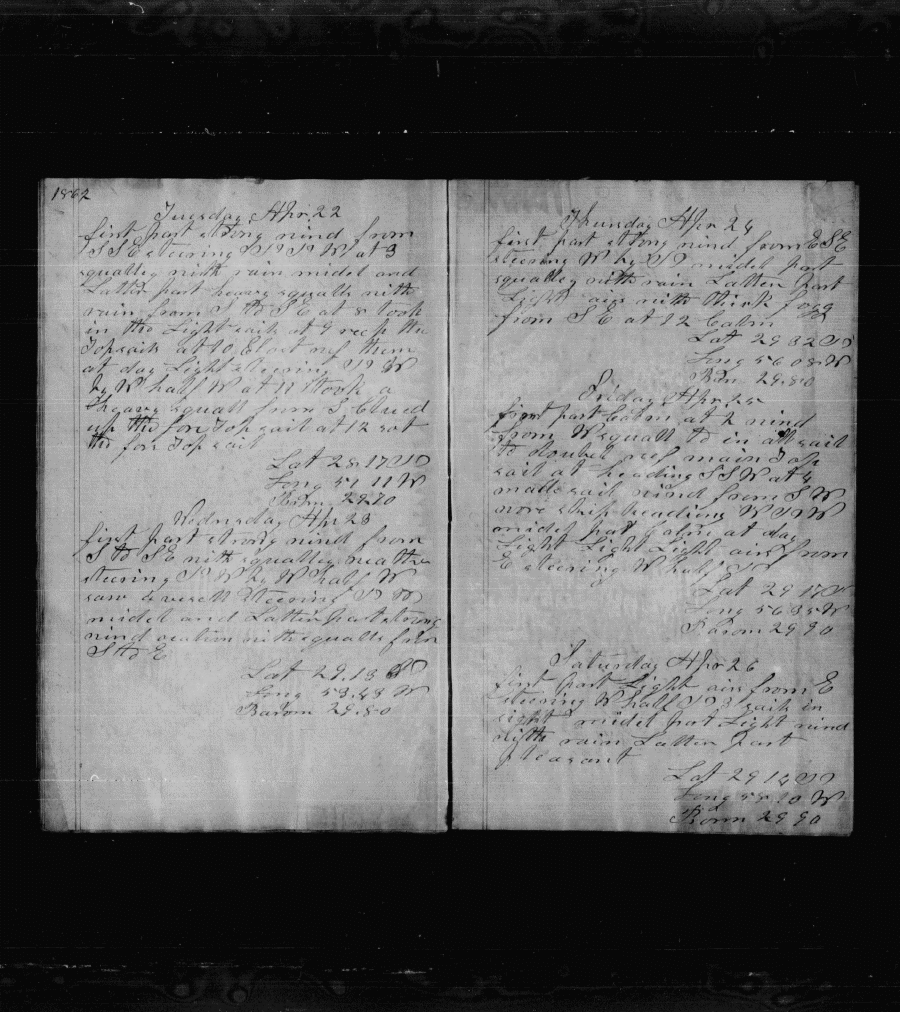 1862
Tuesday Apr 22
first part strong wind from
SSE steering N N W at 3
squalley with rain midel and
Latter part heavy squalls with
rain from S to SE at 8 took
in the Light sails at 9 reef the
Topsails at 10 Clost reef them
at day Light steering N W
by W half W at 11 took a
heavy squall from S Clued
up the fore Topsail at 12 sat
the fore Topsail
Lat 28 17
Long 51 11 W
Barm 29.70
Wednsday Apr 23
first part strong wind from
S to SE with squalley weather
steering N W by W half W
saw a vesell steering
midel and Latter part strong
wind with squalls from
S to E
Lat 29.13
Long 53.43 W
Barom 29.80
Thursday Apr 24
first part strong wind from ESE
steering W by N midel part
squalley with rain Latter part
Light airs with thick fogg
from S E at 12 Calm
Lat 29 32
Long 56 08 W
Bam 29.80
Friday Apr 25
first part Calm at 2 wind
from W squall to in all sail
to double reef main Top
sail at heading SSW at 4
made sail wind from S W
wore ship heading W N W
midel part Calm at day
Light Light Light airs from
E steering W half N
Lat 29 17
Long 56 35 W
Barom 29 90
Saturday Apr 26
first part Light airs from E
steering W half N sails in
sight midel part Light wind
with rain Latter part
pleasant
Lat 29 14
Long 10 W
Barom 29 90